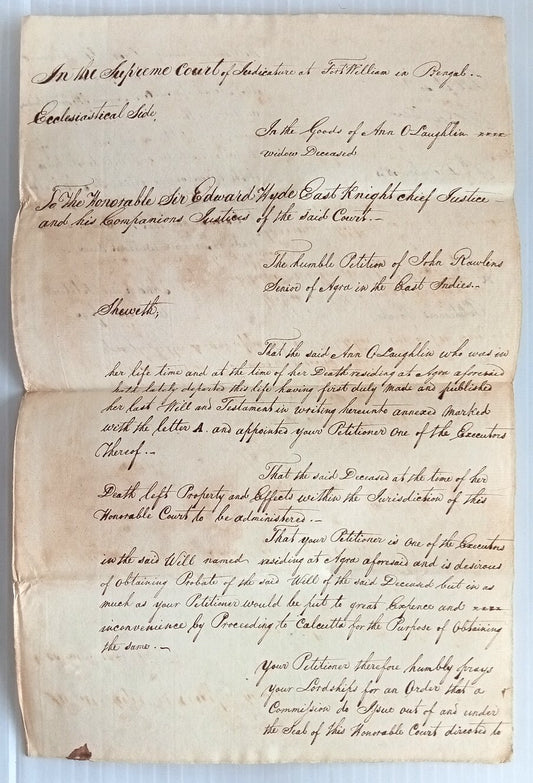 In the Supreme Court of Judicature at Fort William in Bengal.-
Ecclesiastical Side,
In the Goods of Ann O Laughlin
widow Deceased
To The Honorable Sir Edward Hyde East Knight chief Justice
and his Companions Justices of the said Court.-
The humble Petition of John Rawlens
Senior of Agra in the East Indies.-
Sheweth,
That the said Ann O Laughlin who was in
her life time and at the time of her Death residing at Agra aforesaid
hath lately departed this life having first duly made and published
her last Will and Testament in writing hereunto annexed marked
with the letter A. and appointed your Petitioner one of the Executors
Thereof.-
That the said Deceased at the time of her
Death left Property and Effects within the Jurisdiction of this
Honorable Court to be administered.-
That your Petitioner is one of the Executors
in the said Will named residing at Agra aforesaid and is desirous
of obtaining Probate of the said Will of the said Deceased but in as
much as your Petitioner would be put to great Expence and
inconvenience by Proceeding to Calcutta for the Purpose of obtaining
the same.-
Your Petitioner therefore humbly prays
your Lordships for an Order that a
Commission do Issue out of and under
the Seal of this Honorable Court directed to